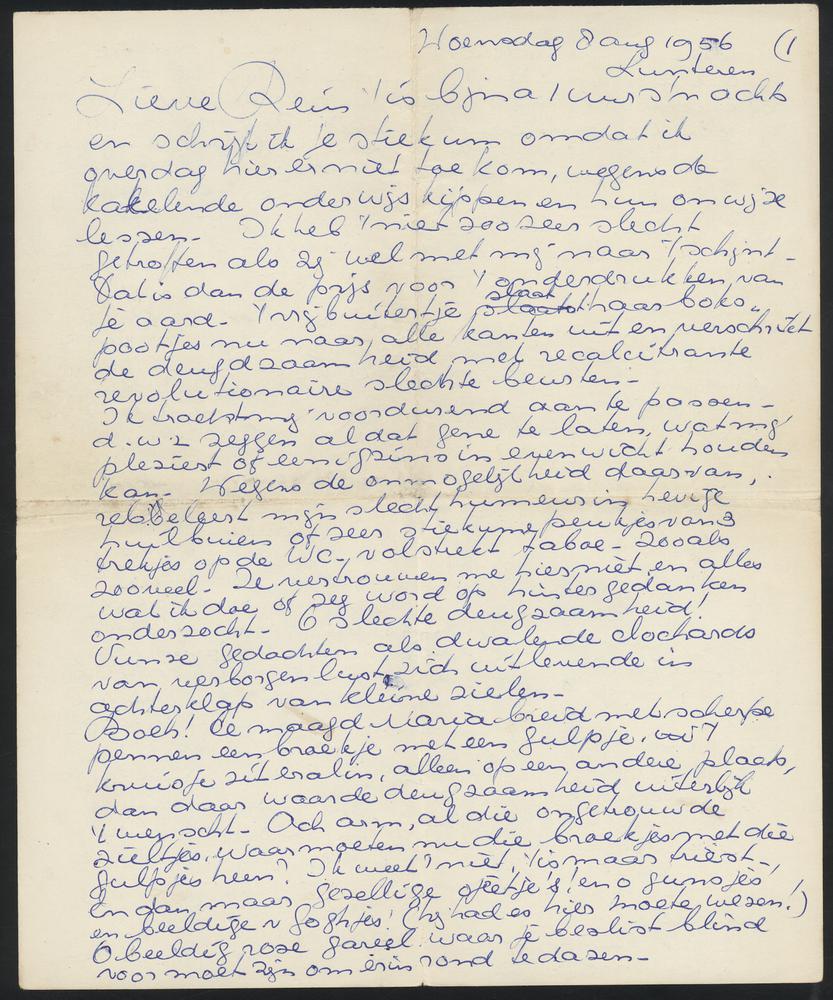 Woensdag 8 aug 1956 (1
Lunteren
Lieve Rein 't is bijna 1 uur 's nachts
en schrijf ik je stiekum omdat ik
overdag hier er niet toe kom, wegens de
kakelende onderwijs kippen en hun onwijze
lessen - Ik heb 't niet zoo zeer slecht
getroffen als zij wel met mij naar 't schijnt -
Dat is dan de prijs voor 't onderdrukken van
je aard - 't vrijbuitertje slaat haar boks
pootjes nu naar alle kanten uit en verschrikt
de deugdzaamheid met recalcitrante
revolutionaire slechte beurten -
Ik tracht mij voordurend aan te passen -
d.w.z zeggen al dat gene te laten, wat mij
pleziert of eenigzins in evenwicht houden
kan - Wegens de onmogelijkheid daarvan,
rebbeleert mijn slecht humeur in hevige
huilbuien of zeer stiekume peukjes van 3
trekjes op de WC - volstrekt taboe - zooals
zooveel - Ze vertrouwen me hier niet en alles
wat ik doe of zeg word op hintergedanken
onderzocht - O slechte deugzaamheid!
Vunze gedachten als dwalende clochards
van verborgen lust zich uitlevende in
achterklap van kleine zielen -
Boeh! De maagd Maria breid met scherpe
pennen een broekje met een gulpje,
kruisje zit er al in, alleen op een andere plaats,
dan daar waar de deugzaamheid uiterlijk
't wenscht - Och arm, al die ongetrouwde
zieltjes, waar moeten nu die broekjes met die
gulpjes heen? Ik weet 't niet, 't is maar triest -
En dan maar gezellige ! en o
en beeldige v Goghjes! (hij had es hier moete wezen!)
O beeldig rose gareel waar je beslist blind
voor moet zijn om erin rond te dazen -